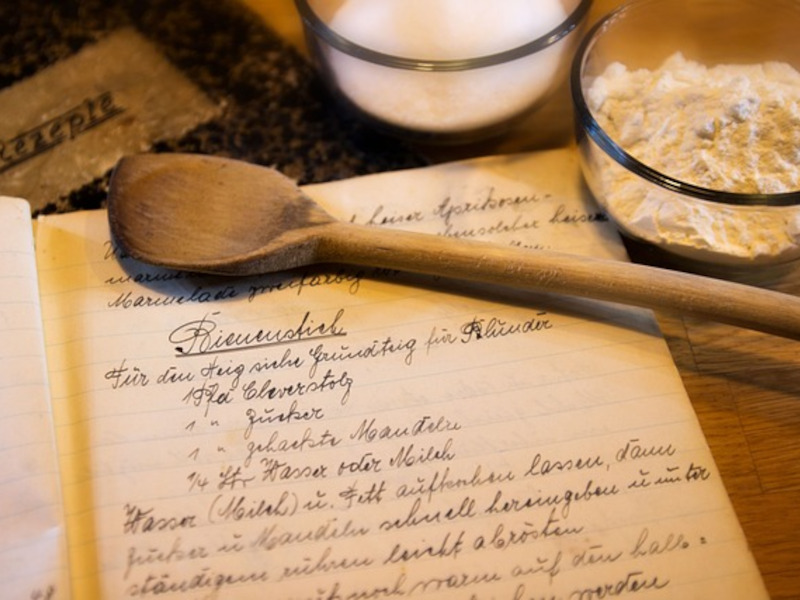 Rezepte
heiser Aprikosen-
heisen
Marmelade zweifarbig
Bienenstich
Für den Teig siehe Grundteig für Plunder
1 Pfd Cleverstolz
1 " Zucker
1 " gehackte Mandeln
1/4 Ltr Wasser oder Milch
Wasser (Milch) u. Fett aufkochen lassen, dann
Zucker u Mandeln schnell hereingeben u unter
ständigem rühren leicht abrösten
noch warm auf den halb=
werden